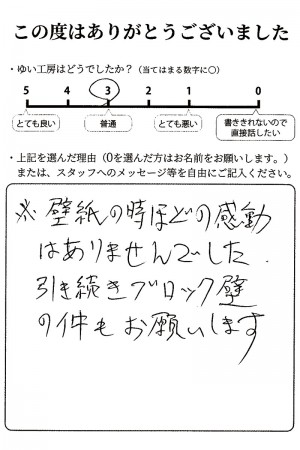 この度はありがとうございました
・ゆい工房はどうでしたか？（当てはまる数字に○）
5 4 3 2 1 0
とても良い 普通 とても悪い 書ききれないので直接話したい
・上記を選んだ理由（0を選んだ方はお名前をお願いします。）
または、スタッフへのメッセージ等を自由にご記入ください。
※壁紙の時ほどの感動
はありませんでした.
引き続きブロック壁
の件もお願いします